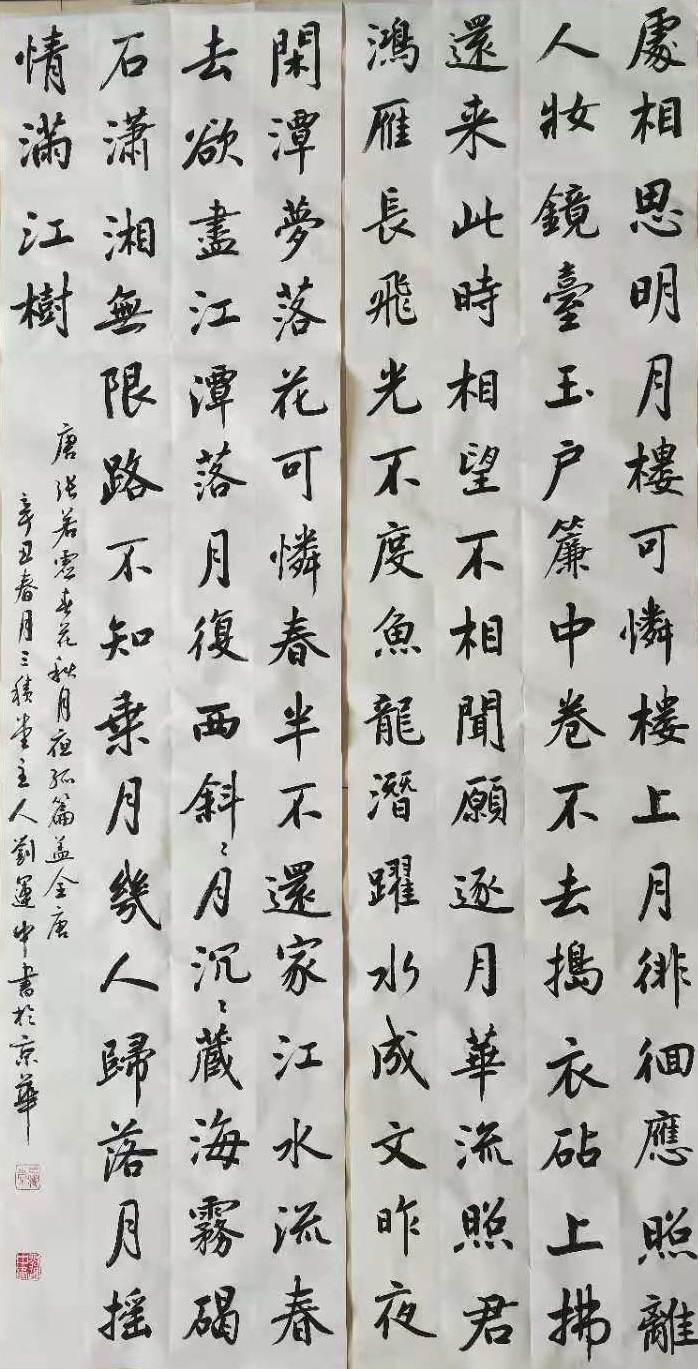 處相思明月樓可憐樓上月徘徊應照離
人妝鏡臺玉户簾中卷不去搗衣砧上拂
還来此時相望不相聞願逐月華流照君
鴻雁長飛光不度魚龍潛躍水成文昨夜
閑潭夢落花可憐春半不還家江水流春
去欲盡江潭落月復西斜〻月沉〻藏海霧碣
石瀟湘無限路不知乘月幾人歸落月摇
情滿江樹
唐張若虛春花秋月夜孤篇盖全唐
辛丑春月三積堂主人劉運中書於京華